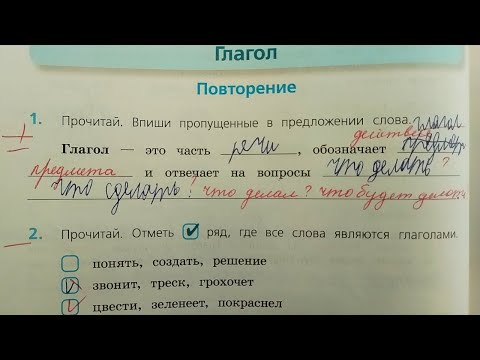 Глагол
Повторение
1. Прочитай. Впиши пропущенные в предложении слова. глагол
действие
Глагол — это часть речи, обозначает
предмета и отвечает на вопросы что делать?
что сделать? что делал? что будет делать
2. Прочитай. Отметь ✔ ряд, где все слова являются глаголами.
понять, создать, решение
звонит, треск, грохочет
цвести, зеленеет, покраснел